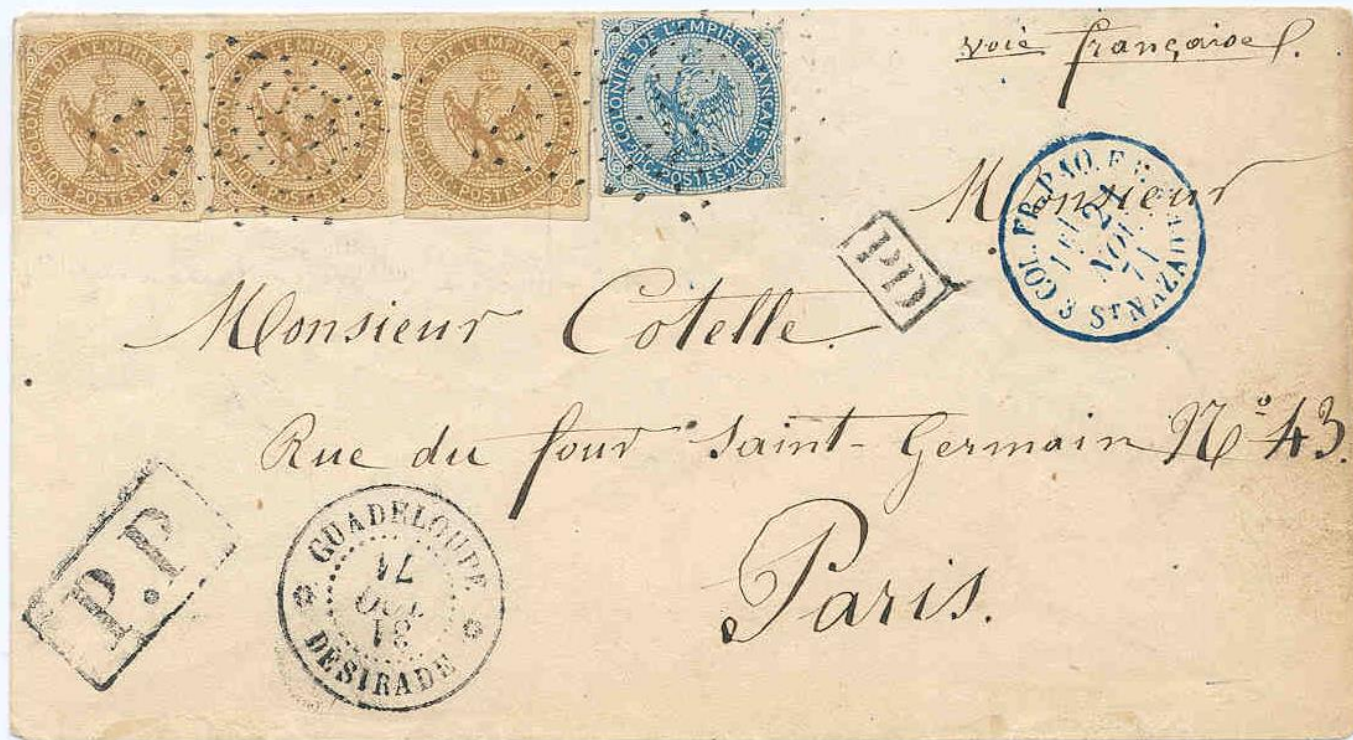 COLONIES DE L'EMPIRE FRANÇAISE
10C POSTES 10C
COLONIES DE L'EMPIRE FRANÇAISE
10C POSTES 10C
COLONIES DE L'EMPIRE FRANÇAISE
10C POSTES 10C
COLONIES DE L'EMPIRE FRANÇAISE
20C POSTES 20C
voie française
COL. FR. PAQ. FR.
21
NOV.
71
3 ST NAZAIRE 3
Monsieur
PD
Monsieur Cotelle.
Rue du four Saint-Germain No 43.
Paris.
P.P
GUADELOUPE
31
OCT
71
DESIRADE